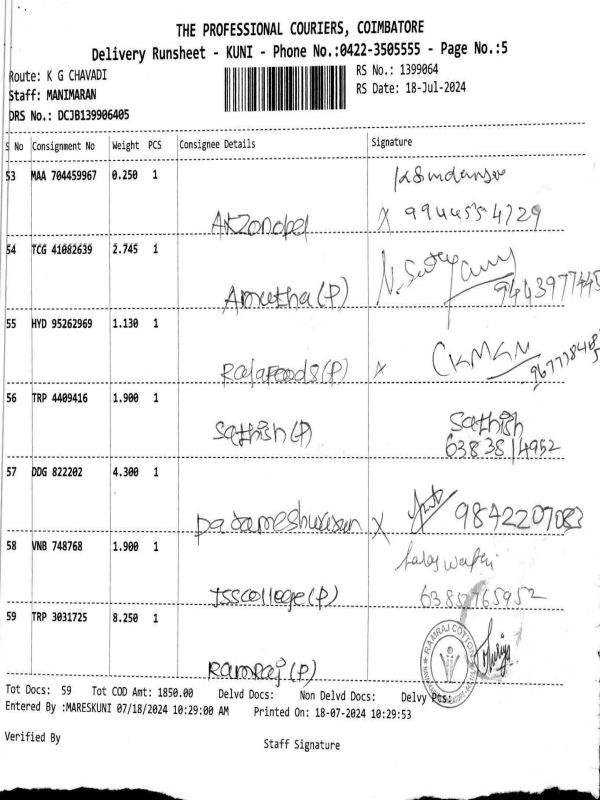 THE PROFESSIONAL COURIERS, COIMBATORE
Delivery Runsheet - KUNI - Phone No.:0422-3505555 - Page No.:5
Route: K G CHAVADI RS No.: 1399064
Staff: MANIMARAN RS Date: 18-Jul-2024
DRS No.: DCJB139906405
S No Consignment No Weight PCS Consignee Details Signature
53 MAA 704459967 0.250 1
54 TCG 41082639 2.745 1
Amutha(P)
55 HYD 95262969 1.130 1
RajaFoods(P) x CKMGN
56 TRP 4409416 1.900 1
Sathish(P) Sathish
6383814952
57 DDG 822202 4.300 1
x 9842207083
58 VNB 748768 1.900 1
Jsscollege(P)
59 TRP 3031725 8.250 1
RAMRAJ COTTON
Ramraj(P)
Tot Docs: 59 Tot COD Amt: 1850.00 Delvd Docs: Non Delvd Docs: Delvy Pts:
Entered By :MARESKUNI 07/18/2024 10:29:00 AM Printed On: 18-07-2024 10:29:53
Verified By Staff Signature